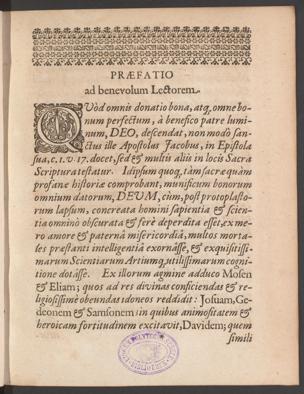 PRÆFATIO
ad benevolum Lectorem.
QUòd omnis donatio bona, atq, omne bo-
num perfectum, à benefico patre lumi-
num, DEO, descendat, non modò san-
ctus ille Apostolus Jacobus, in Epistola
sua, c. 1. v. 17. docet, sed & multis aliis in locis Sacra
Scriptura testatur. Idipsum quoq, tàm sacræ quàm
profanæ historiæ comprobant, munificum bonorum
omnium datorem, DEUM, cùm, post protoplasto-
rum lapsum, concreata homini sapientia & scien-
tia omninò obscurata & ferè deperdita esset, ex me-
ro amore & paternâ misericordiâ, multos morta-
les præstanti intelligentiâ exornâsse, & exquisitissi-
marum Scientiarum Artiumq, utilissimarum cogni-
tione dotâsse. Ex illorum agmine adduco Mosen
& Eliam; quos ad res divinas conficiendas & re-
ligiosissimè obeundas idoneos reddidit: Josuam, Ge-
deonem & Samsonem: in quibus animositatem &
heroicam fortitudinem excitavit, Davidem; quem
simili